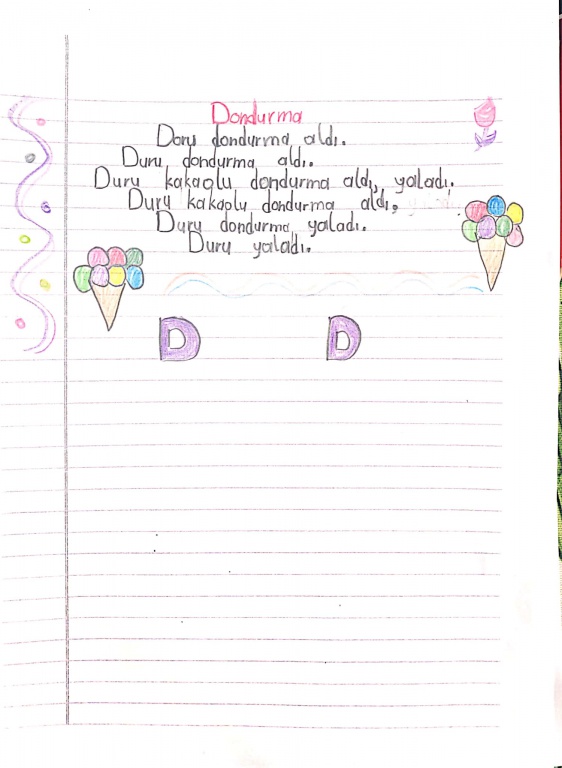 Dondurma
Doru dondurma aldı.
Duru, dondurma aldı.
Duru kakaolu dondurma aldı, yaladı.
Duru kakaolu dondurma aldı,
Duru dondurma, yaladı.
Duru yaladı.
D D